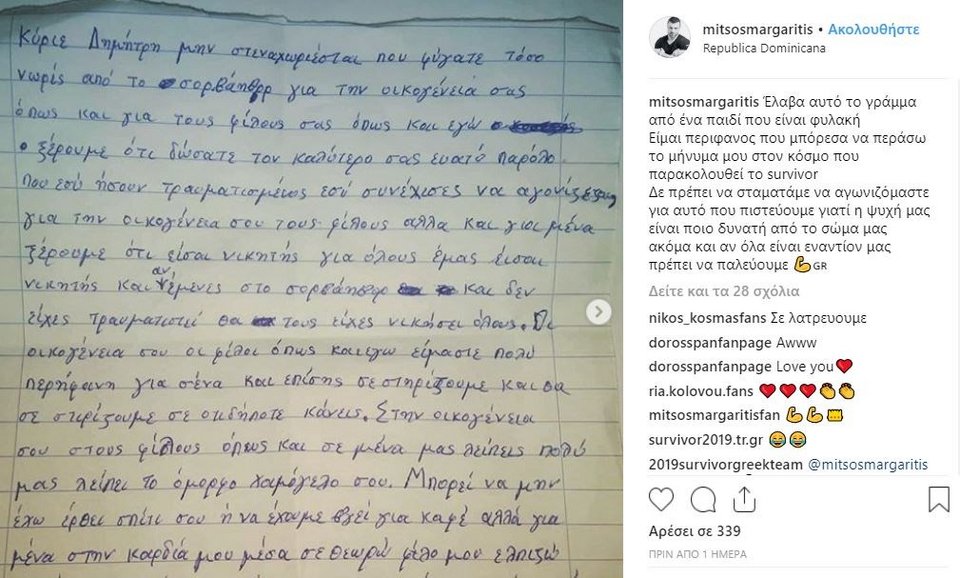 Κύριε Δημήτρη μην στεναχωριέσται που φύγατε τόσο
νωρίς από το σορβάηβρ για την οικογένεια σας
όπως και για τους φίλους σας όπως και εγώ
ξέρουμε ότι δώσατε τον καλύτερο σας ευατό παρόλο
που εσύ ήσουν τραυματισμένος εσύ συνέχισες να
για την οικογένεια σου τους φίλους αλλα και για μένα
ξέρουμε ότι είσαι νικητής για όλους έμας είσαι
νικητής και αν έμενες στο σορβάηβρ και δεν
είχες τραυματιστεί θα τους είχες νικήσει όλους. Οι
οικογένεια σου οι φίλοι όπως και εγω είμαστε πολύ
περηφανη για σένα και επίσης σε στηρίξουμε και θα
σε στιρίξουμε σε οτιδήποτε κάνεις. Στην οικογένεια
σου στους φίλους όπως και σε μένα μας λείπεις πολύ
μας λείπει το όμορφο χαμόγελο σου. Μπορεί να μην
έχω έρθει σπίτι σου ή να έχουμε βγεί για καφέ αλλά για
μένα στην καρδιά μου μέσα σε θεωρώ φίλο μου ελπιζω
mitsosmargaritis • Ακολουθήστε
Republica Dominicana
mitsosmargaritis Έλαβα αυτό το γράμμα
από ένα παιδί που είναι φυλακή
Είμαι περιφανος που μπόρεσα να περάσω
το μήνυμα μου στον κόσμο που
παρακολουθεί το survivor
Δε πρέπει να σταματάμε να αγωνιζόμαστε
για αυτό που πιστεύουμε γιατί η ψυχή μας
είναι ποιο δυνατή από το σώμα μας
ακόμα και αν όλα είναι εναντίον μας
πρέπει να παλεύουμε 💪GR
Δείτε και τα 28 σχόλια
nikos_kosmasfans Σε λατρευουμε
dorosspanfanpage Awww
dorosspanfanpage Love you❤
ria.kolovou.fans ❤❤❤👏👏
mitsosmargaritisfan 💪💪👊
survivor2019.tr.gr 😂😂
2019survivorgreekteam @mitsosmargaritis
Αρέσει σε 339
ΠΡΙΝ ΑΠΌ 1 ΗΜΈΡΑ